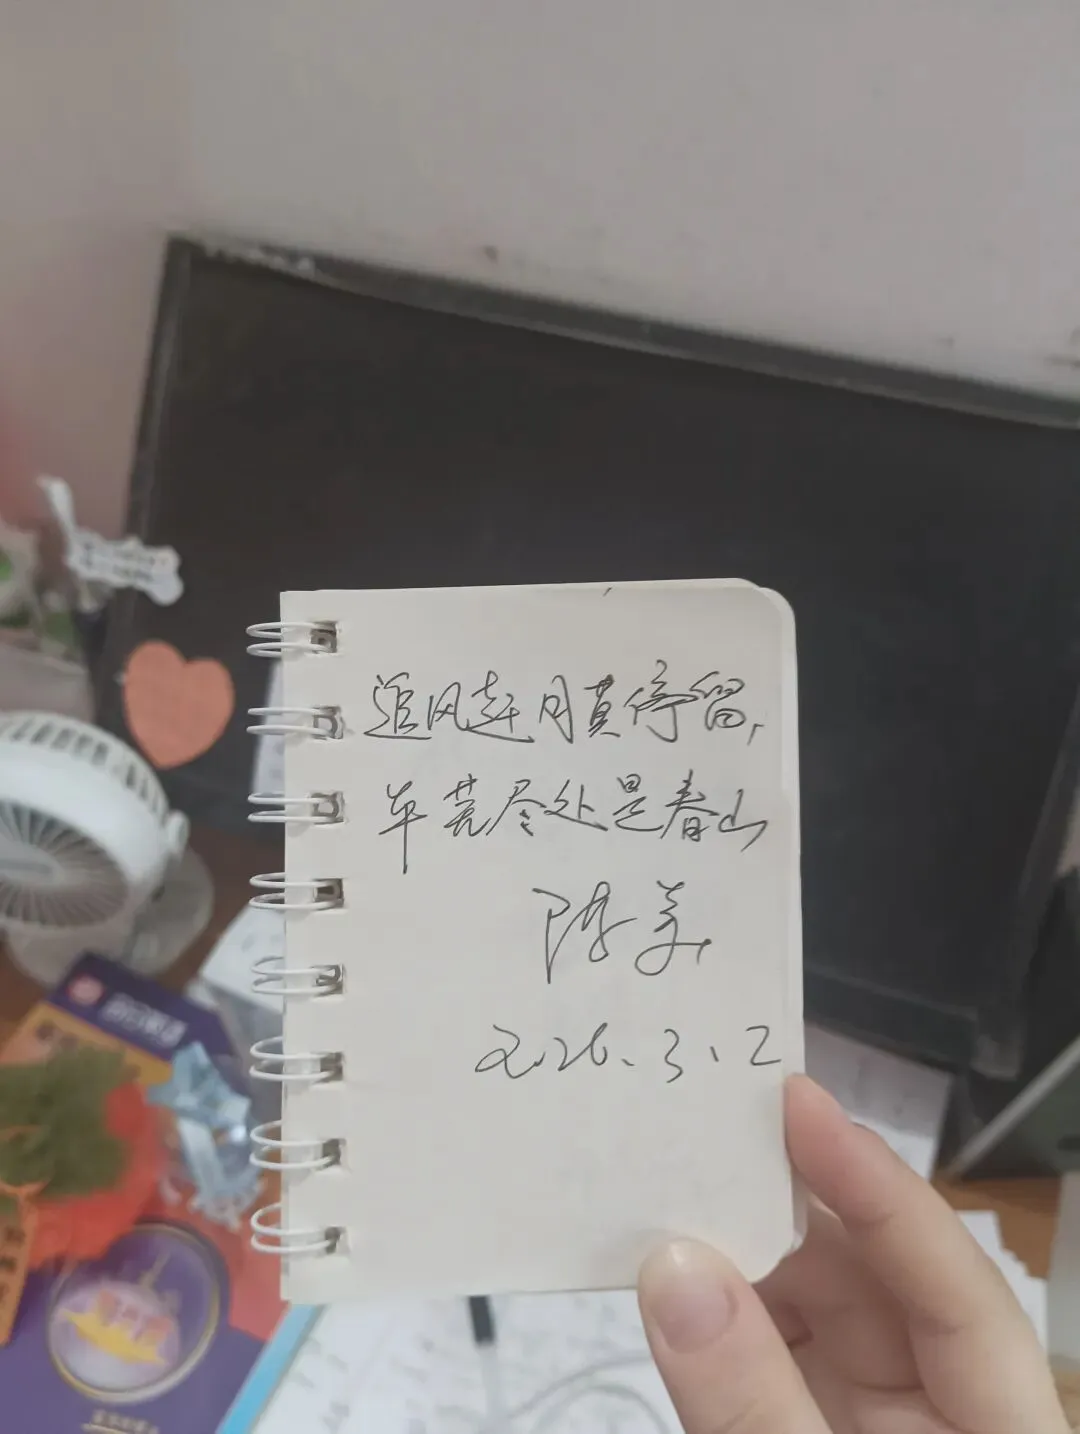 追风赶月莫停留，
平芜尽处是春山
陈美
2026.3.2